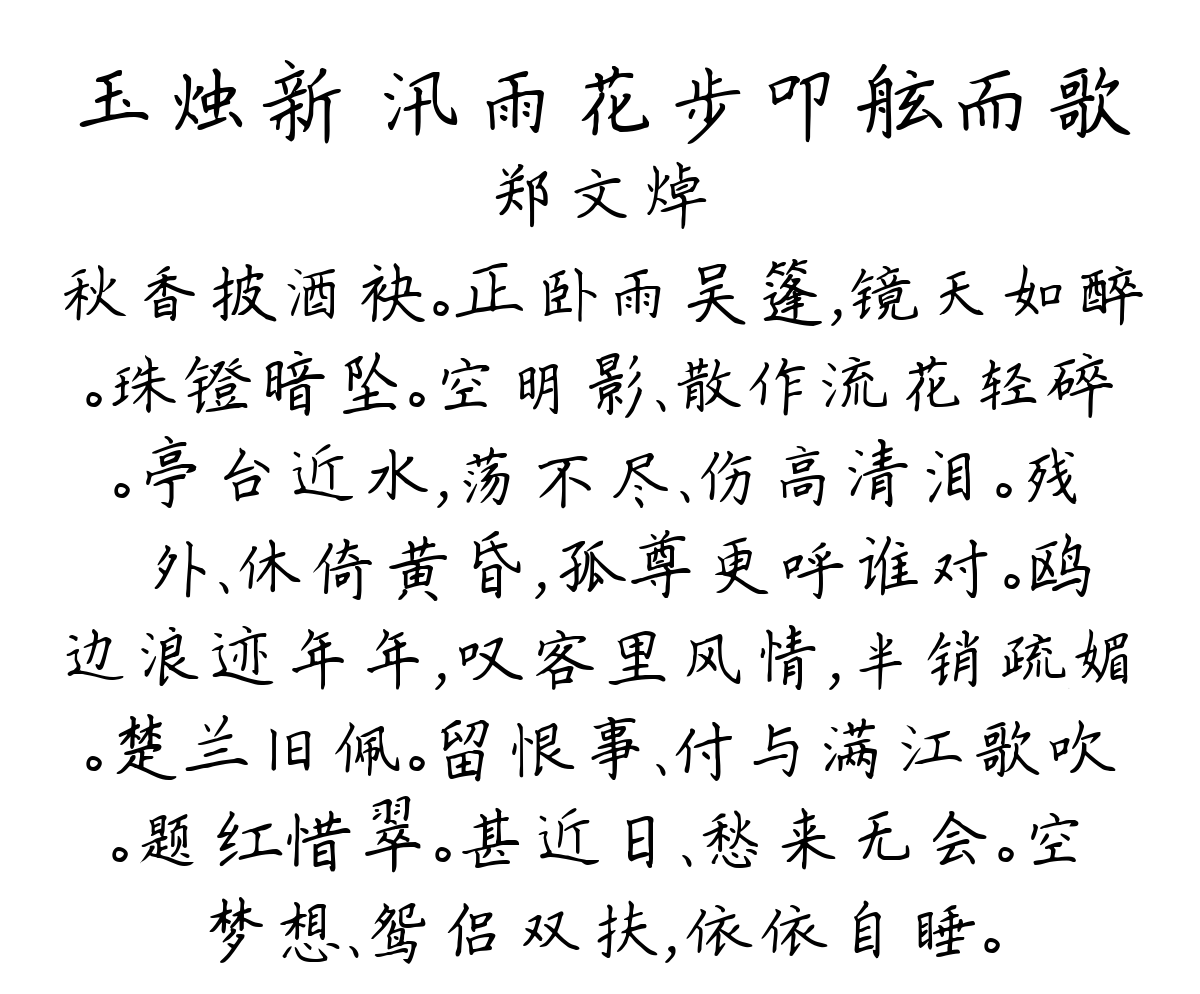 玉烛新 汛雨花步叩舷而歌
郑文焯
秋香披酒袂。正卧雨吴篷,镜天如醉
。珠镫暗坠。空明影、散作流花轻碎
。亭台近水,荡不尽、伤高清泪。残
外、休倚黄昏,孤尊更呼谁对。鸥
边浪迹年年,叹客里风情,半销疏媚
。楚兰旧佩。留恨事、付与满江歌吹
。题红惜翠。甚近日、愁来无会。空
梦想、鸳侣双扶,依依自睡。